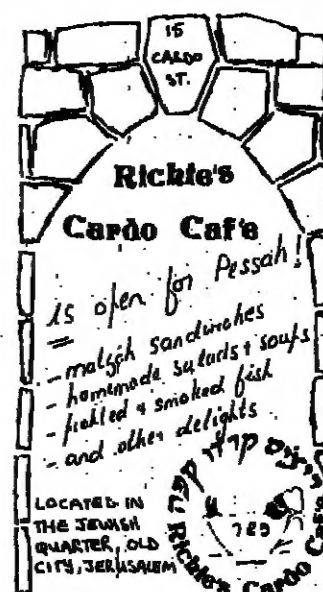 15
CARDO
ST.
Richie's
Cardo Caf'e
is open for Pessah!
- matzah sandwiches
- homemade salads + soups
- pickled + smoked fish
- and other delights
LOCATED IN
THE JEWISH
QUARTER, OLD
CITY, JERUSALEM
Richie's Cardo Caf'e